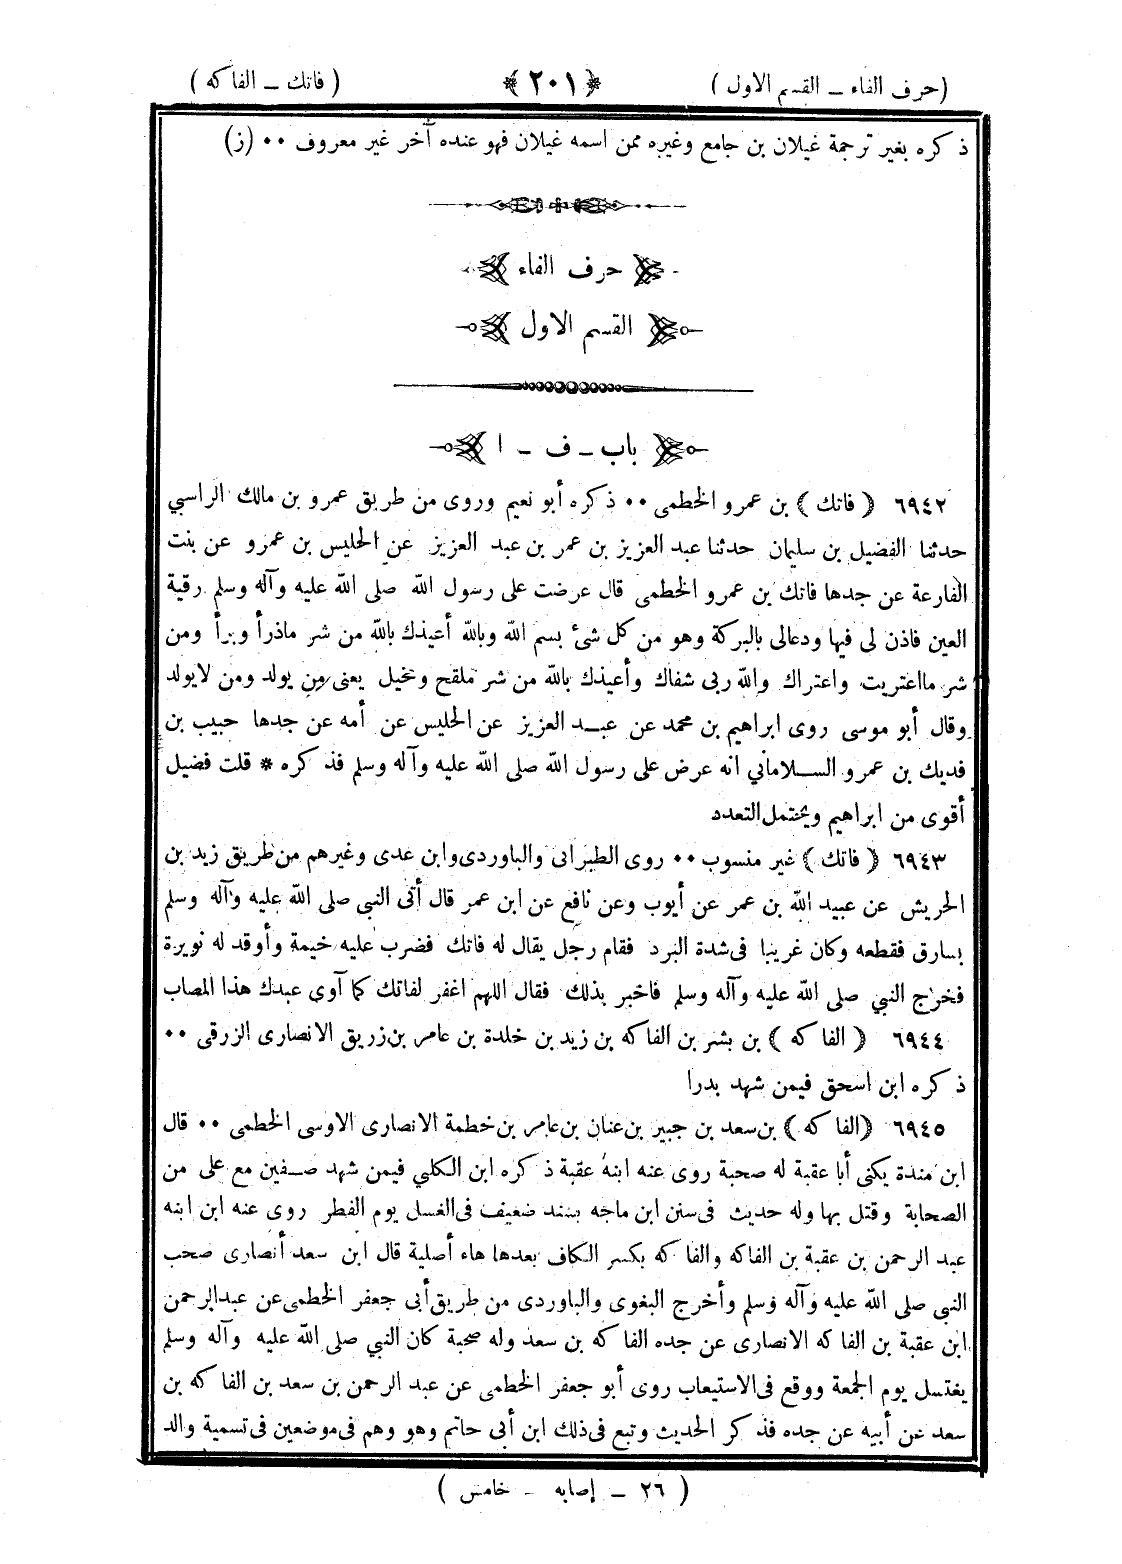 (حرف الفاء ــ القسم الاول) ﴿٢٠١﴾ (فاتك ــ الفاكه)
ذكره بغير ترجمة غيلان بن جامع وغيره ممن اسمه غيلان فهو عنده آخر غير معروف ٠٠ (ز)
حرف الفاء
القسم الاول
باب ــ ف ــ ا
٦٩٤٢ ﴿ فاتك ﴾ بن عمرو الخطمى ٠٠ ذكره أبو نعيم وروى من طريق عمرو بن مالك الراسبي
حدثنا الفضيل بن سليمان حدثنا عبد العزيز بن عمر بن عبد العزيز عن الحليس بن عمرو عن بنت
الفارعة عن جدها فاتك بن عمرو الخطمى قال عرضت على رسول الله صلى الله عليه وآله وسلم رقية
العين فاذن لى فيها ودعالى بالبركة وهو من كل شئ بسم الله وبالله أعيذك بالله من شر ماذرأ وبرأ ومن
شر مااعتريت واعتراك والله ربى شفاك وأعيذك بالله من شر ملقح وتخيل يعنى من يولد ومن لايولد
وقال أبو موسى روى ابراهيم بن محمد عن عبـد العزيز عن الحليس عن أمه عن جدها حبيب بن
فديك بن عمرو السـلاماني انه عرض على رسول الله صلى الله عليه وآله وسلم فذكره * قلت فضيل
أقوى من ابراهيم ويحتمل التعدد
٦٩٤٣ ﴿ فاتك ﴾ غير منسوب ٠٠ روى الطبرانى والباوردى وابن عدى وغيرهم من طريق زيد بن
الحريش عن عبيد الله بن عمر عن أيوب وعن نافع عن ابن عمر قال أتى النبي صلى الله عليه وآله وسلم
بسارق فقطعه وكان غريبا فى شدة البرد فقام رجل يقال له فاتك فضرب عليه خيمة وأوقد له نويرة
فخرج النبي صلى الله عليه وآله وسلم فاخبر بذلك فقال اللهم اغفر لفاتك كما آوى عبدك هذا المصاب
٦٩٤٤ ﴿ الفاكه ﴾ بن بشر بن الفاكه بن زيد بن خلدة بن عامر بن زريق الانصارى الزرقى ٠٠
ذكره ابن اسحق فيمن شهد بدرا
٦٩٤٥ ﴿الفاكه ﴾ بن سعد بن جبير بن عنان بن عامر بن خطمة الانصارى الاوسى الخطمى ٠٠ قال
ابن مندة يكنى أبا عقبة له صحبة روى عنه ابنه عقبة ذكره ابن الكلبي فيمن شهد صـفين مع على من
الصحابة وقتل بها وله حديث فى سنن ابن ماجه بسند ضعيف فى الغسل يوم الفطر روى عنه ابن ابنه
عبد الرحمن بن عقبة بن الفاكه والفاكه بكسر الكاف بعدها هاء أصلية قال ابن سعد أنصارى صحب
النبى صلى الله عليه وآله وسلم وأخرج البغوى والباوردى من طريق أبى جعفر الخطمى عن عبدالرحمن
ابن عقبة بن الفاكه الانصارى عن جده الفاكه بن سعد وله صحبة كان النبي صلى الله عليه وآله وسلم
يغتسل يوم الجمعة ووقع فى الاستيعاب روى أبو جعفر الخطمى عن عبد الرحمن بن سعد بن الفاكه بن
سعد عن أبيه عن جده فذكر الحديث وتبع فى ذلك ابن أبى حاتم وهو وهم فى موضعين فى تسمية والد
(٢٦ ــ إصابه ــ خامس)